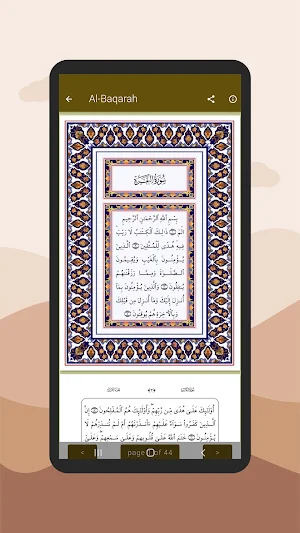 Al-Baqarah
سُورَةُ البَقَرَةِ
بِسْمِ اللَّهِ الرَّحْمَٰنِ الرَّحِيمِ
الٓمٓ ۝ ذَٰلِكَ الْكِتَٰبُ لَا رَيْبَ
فِيهِ هُدًى لِّلْمُتَّقِينَ ۝ الَّذِينَ
يُؤْمِنُونَ بِالْغَيْبِ وَيُقِيمُونَ
الصَّلَوٰةَ وَمِمَّا رَزَقْنَٰهُمْ
يُنفِقُونَ ۝ وَالَّذِينَ يُؤْمِنُونَ بِمَا
أُنزِلَ إِلَيْكَ وَمَا أُنزِلَ مِن قَبْلِكَ
وَبِالْآخِرَةِ هُمْ يُوقِنُونَ ۝
أُو۟لَٰٓئِكَ عَلَىٰ هُدًى مِّن رَّبِّهِمْ وَأُو۟لَٰٓئِكَ هُمُ الْمُفْلِحُونَ ۝ إِنَّ
الَّذِينَ كَفَرُوا سَوَآءٌ عَلَيْهِمْ ءَأَنذَرْتَهُمْ أَمْ لَمْ تُنذِرْهُمْ لَا
يُؤْمِنُونَ ۝ خَتَمَ اللَّهُ عَلَىٰ قُلُوبِهِمْ وَعَلَىٰ سَمْعِهِمْ وَعَلَىٰ
page of 44